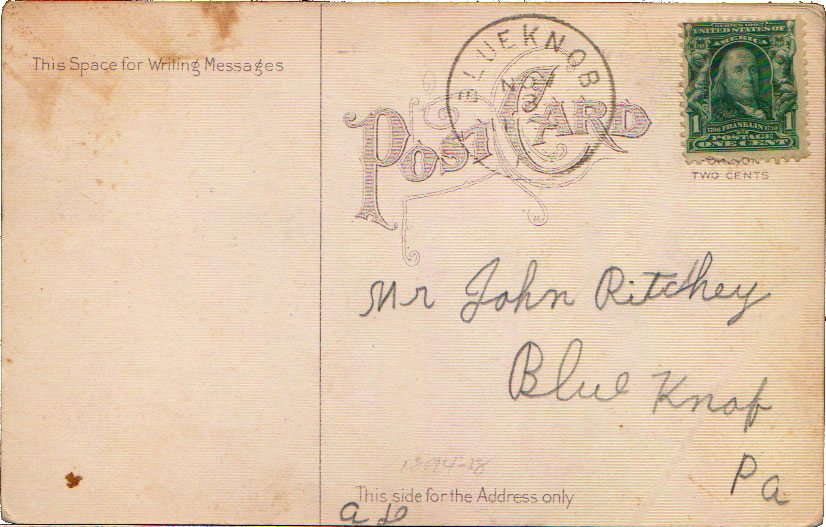 This Space for Writing Messages
POST CARD
BLUEKNOB
SERIES 1902
UNITED STATES OF
AMERICA
1 FRANKLIN 1
POSTAGE
ONE CENT
TWO CENTS
Mr John Ritchey
Blue Knob
Pa
This side for the Address only